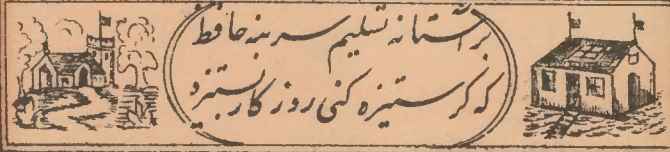 بر آستانه تسلیم سر بنه حافظ
که گر ستیزه کنی روزگار بستیزد